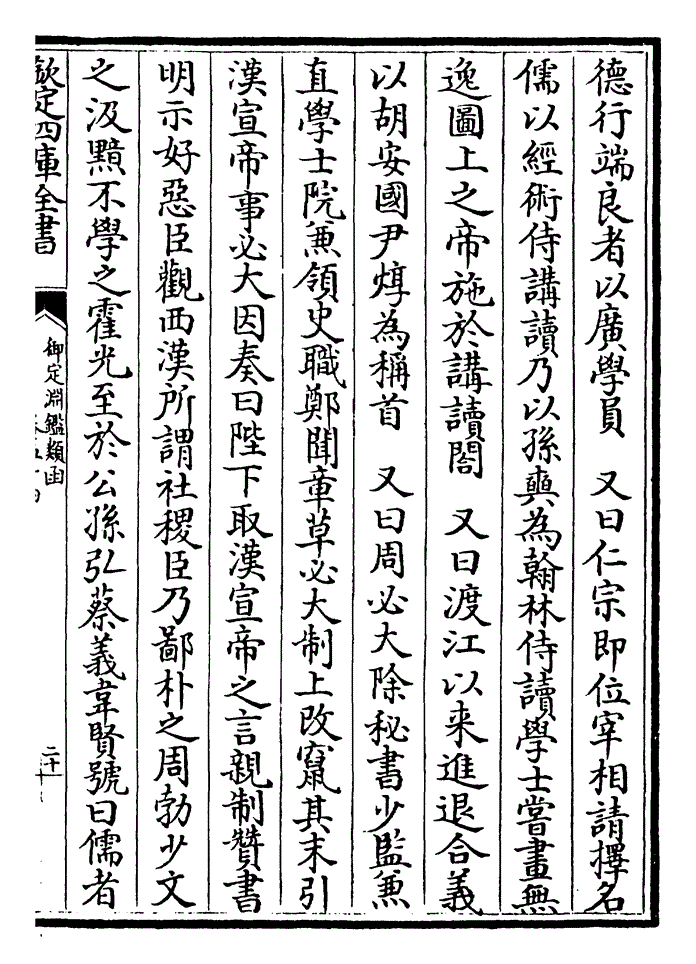 德行端良者以廣學員　又曰仁宗即位宰相請擇名
儒以經術侍講讀乃以孫奭為翰林侍讀學士嘗畫無
逸圖上之帝施於講讀閣　又曰渡江以来進退合義
以胡安國尹焞為稱首　又曰周必大除秘書少監兼
直學士院兼領史職鄭聞草必大制上改竄其末引
漢宣帝事必大因奏曰陛下取漢宣帝之言親制贊書
明示好惡臣觀西漢所謂社稷臣乃鄙朴之周勃少文
之汲黯不學之霍光至於公孫弘蔡義韋賢號曰儒者
欽定四庫全書
御定淵鑑類函
二十